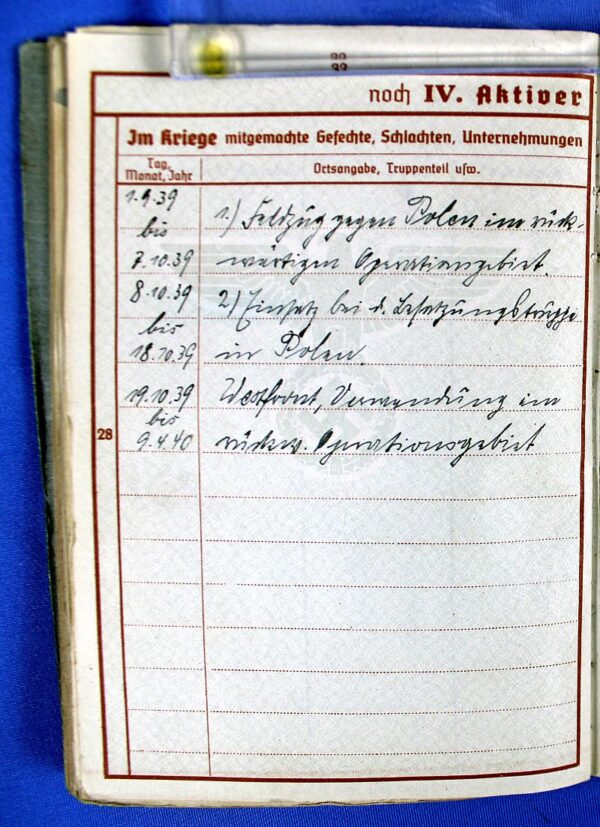 noch IV. Aktiver
Im Kriege mitgemachte Gefechte, Schlachten, Unternehmungen
Tag, Monat, Jahr
Ortsangabe, Truppenteil usw.
1.9.39
bis
1.) Feldzug gegen Polen im rück-
7.10.39 wärtigen Operationgebiet.
8.10.39 2) Einsatz bei d. Besatzungstruppe
bis
18.10.39 in Polen.
19.10.39 Westfront, Verwendung im
bis
9.4.40 rückw. Operationsgebiet
28